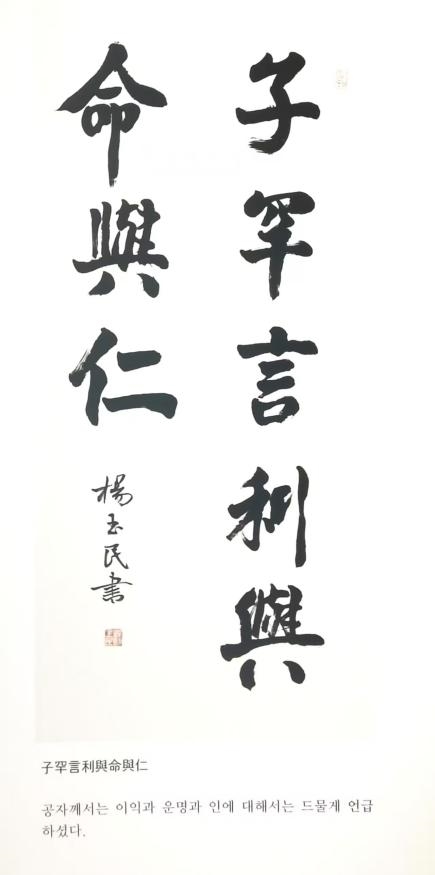 子罕言利與
命與仁
楊玉民書
子罕言利與命與仁
공자께서는 이익과 운명과 인에 대해서는 드물게 언급
하셨다.